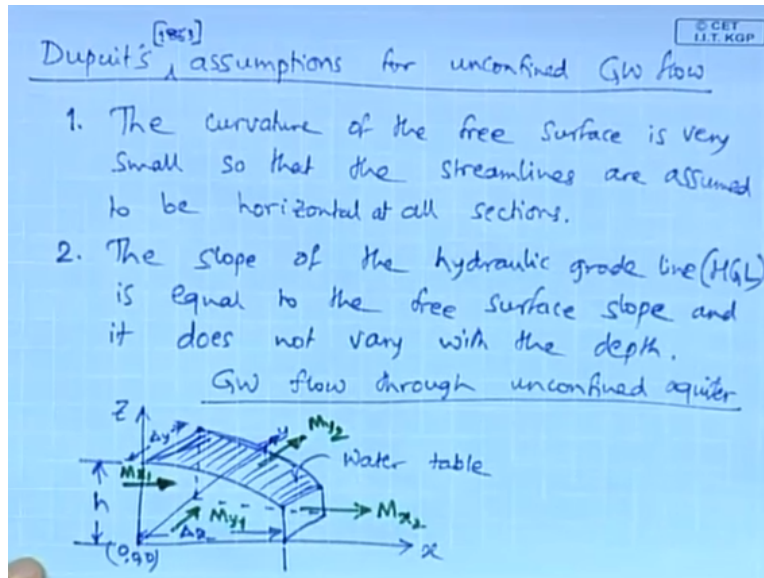 [1863]
© CET
I.I.T. KGP
Dupuit's assumptions for unconfined GW flow
1. The curvature of the free surface is very
small so that the streamlines are assumed
to be horizontal at all sections.
2. The slope of the hydraulic grade line (HGL)
is equal to the free surface slope and
it does not vary with the depth.
GW flow through unconfined aquifer
Z
Δy
y
My2
Water table
Mx1
h
My1
Mx2
Δx
(0,0,0)
x